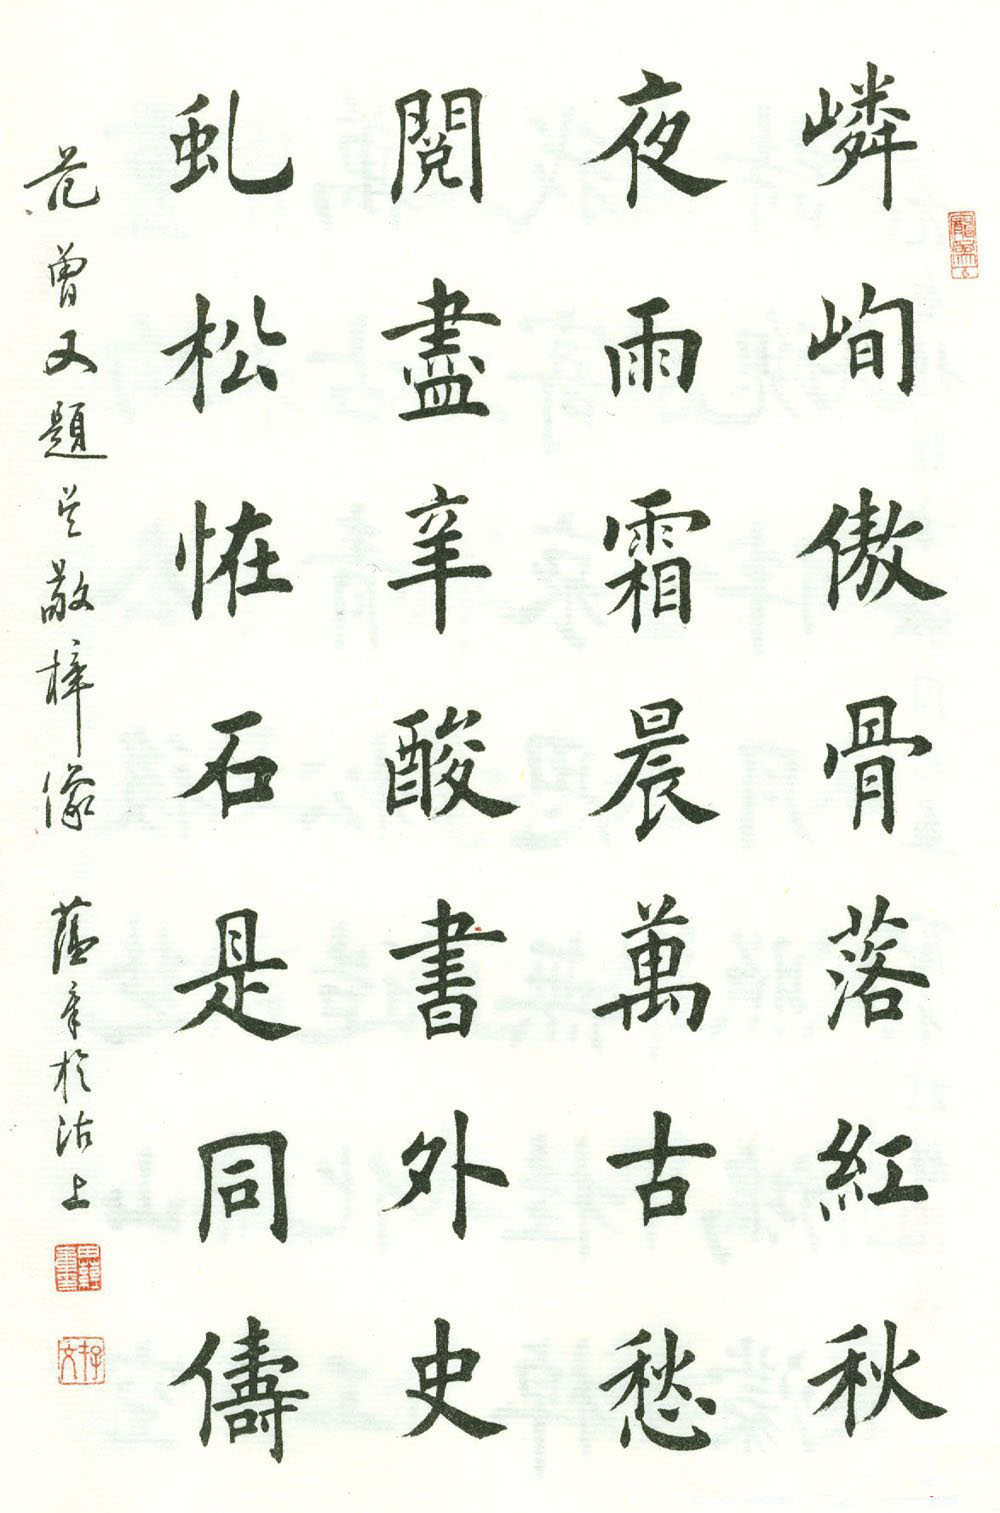 嶙峋傲骨落紅秋
夜雨霜晨萬古愁
閱盡辛酸書外史
虬松恠石是同儔
范曾又題吳敬梓像 蘊章於沽上